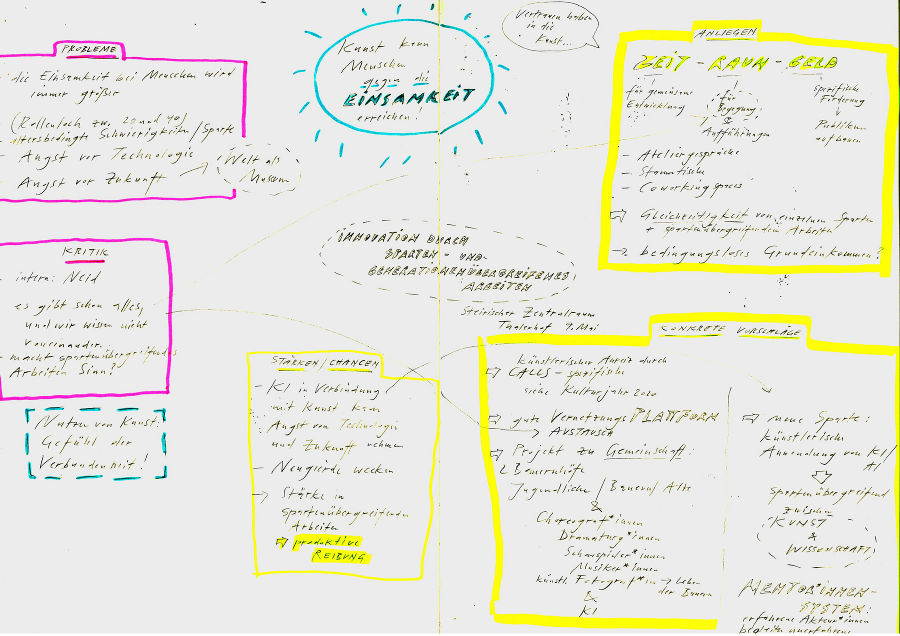 PROBLEME
- die EINSAMKEIT bei Menschen wird
immer größer
(Rollenloch zw. 20 und 40)
altersbedingte Schwierigkeiten/Sparte
- Angst vor Technologie
- Angst vor Zukunft
Welt als
Museum
Kunst kann
Menschen
gegen die
EINSAMKEIT
erreichen!
Vertrauen haben
in die
Kunst...
ANLIEGEN
ZEIT - RAUM - GELD
für gemeinsame
Entwicklung
für
Begegnung
&
Aufführungen
spezifische
Förderung
Publikum
aufbauen
- Ateliergespräche
- Stammtische
- Coworkingspaces
⇨ Gleichzeitigkeit von einzelnen Sparten
+ spartenübergreifenden Arbeiten
→ bedingungsloses Grundeinkommen?
KRITIK
- intern: Neid
- es gibt schon alles,
und wir wissen nicht
voneinander
macht spartenübergreifendes
Arbeiten Sinn?
Nutzen von Kunst:
Gefühl der
Verbundenheit!
INNOVATION DURCH
SPARTEN - UND-
GENERATIONENÜBERGREIFENDES
ARBEITEN
Steirischer Zentralraum
Thalerhof 9. Mai
STÄRKEN/CHANCEN
- KI in Verbindung
mit Kunst kann
Angst von Technologie
und Zukunft nehmen
- Neugierde wecken
→ Stärke in
spartenübergreifenden
Arbeiten
⇨ produktive
REIBUNG
KONKRETE VORSCHLÄGE
künstlerischer Anreiz durch
⇨ CALLS - spezifische
siehe Kulturjahr 2020
⇨ gute Vernetzungs PLATTFORM
→ AUSTAUSCH
⇨ Projekt zu Gemeinschaft:
Bauernhöfe
Jugendliche / Bauern / Alte
&
Choreograf*innen
Dramaturg*innen
Schauspieler*innen
Musiker*innen
künstl. Fotograf*in → Leben
der Bauern
&
KI
⇨ neue Sparte:
künstlerische
Anwendung von KI/
AI
spartenübergreifend
zwischen
KUNST
&
WISSENSCHAFT
MENTOR*INNEN-
SYSTEM:
erfahrene Akteur*innen
begleiten unerfahrene